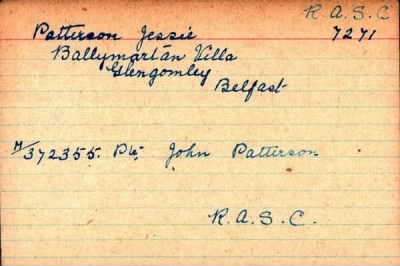 R.A.S.C
Patterson Jessie 7271
Ballymartan Villa
Glengomley
Belfast
M/372355. Pte. John Patterson
R.A.S.C.